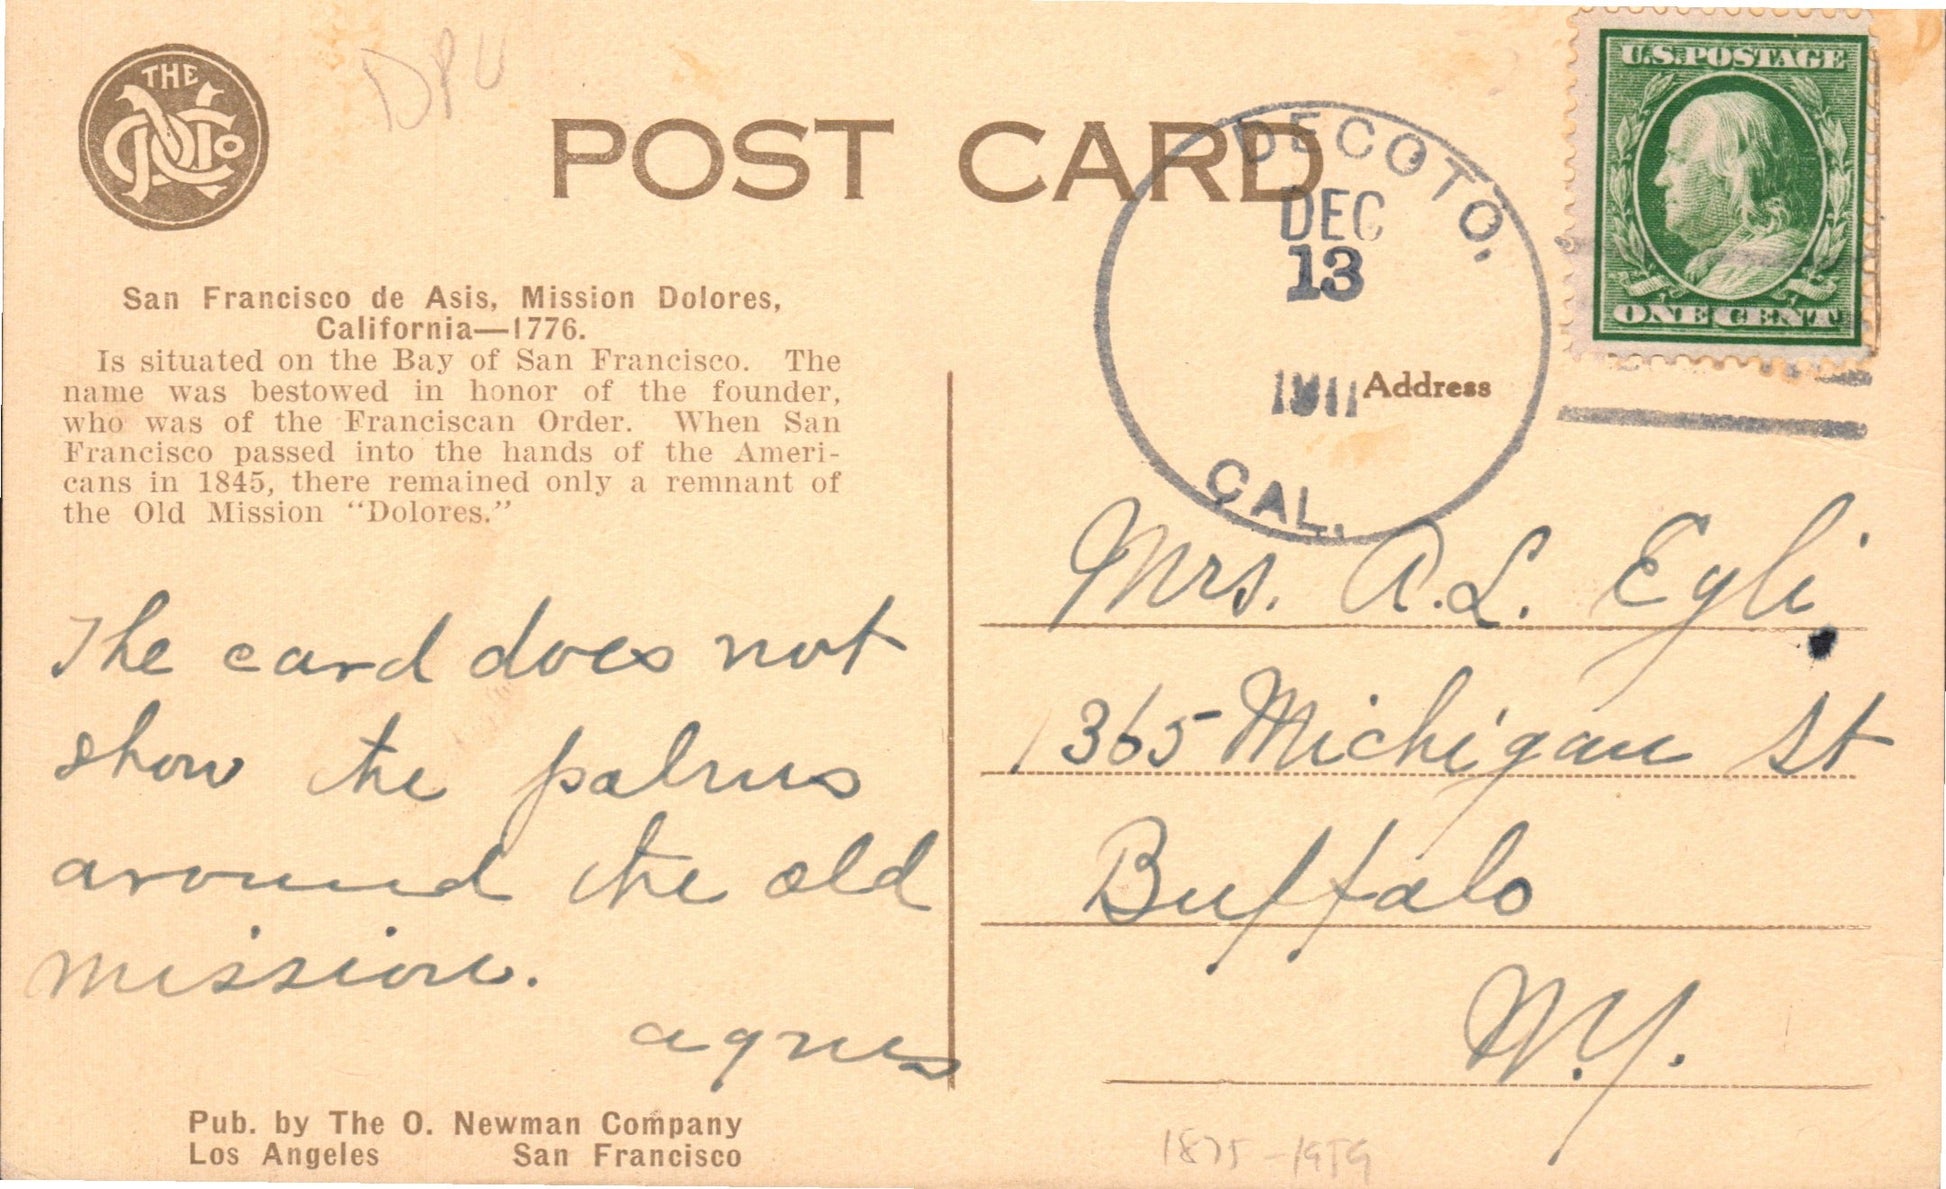 THE
NCo
DPU
POST CARD
DECOTO,
DEC
13
1911
CAL.
U.S. POSTAGE
ONE CENT
San Francisco de Asis, Mission Dolores,
California—1776.
Is situated on the Bay of San Francisco. The
name was bestowed in honor of the founder,
who was of the Franciscan Order. When San
Francisco passed into the hands of the Ameri-
cans in 1845, there remained only a remnant of
the Old Mission "Dolores."
The card does not
show the palms
around the old
mission.
agnes
Pub. by The O. Newman Company
Los Angeles San Francisco
Address
Mrs. A. L. Egli
1365 Michigan St
Buffalo
N.Y.
1875-1959